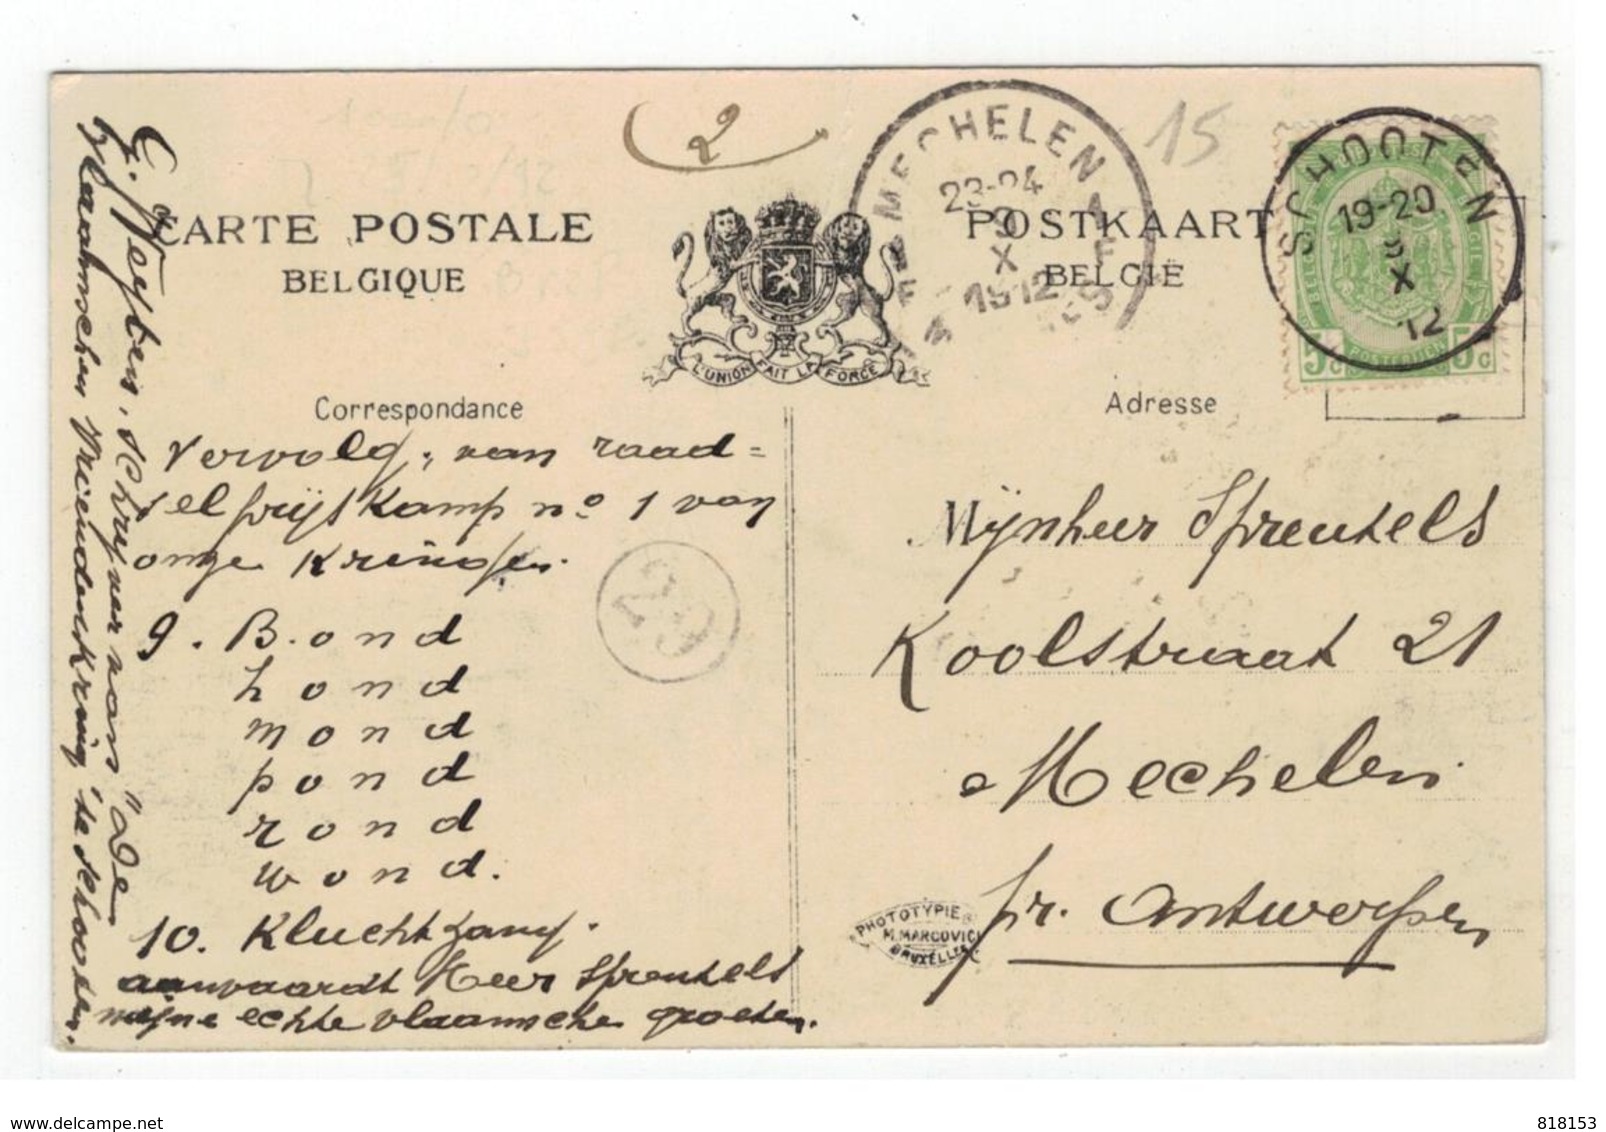 2
15
CARTE POSTALE
BELGIQUE
POSTKAART
BELGIË
MECHELEN
23-24
9
X
1912
SCHOOTEN
19-20
X
12
5c 5c
POSTERIJEN
L'UNION FAIT LA FORCE
Correspondance
Adresse
Vervolg, van raad=
selprijskamp nº 1 van
onze Kringen.
9. Bond
hond
mond
pond
rond
wond.
10. Kluchtzang.
aanvaardt Heer Spreutels
mijne echte vlaamsche groeten.
Schrijver van "De
Vlaamschen Vriendenkring" te Schooten.
29
Mijnheer Spreutels
Koolstraat 21
Mechelen
pr. Antwerpen
PHOTOTYPIE
M. MARCOVICI
BRUXELLES
www.delcampe.net
818153